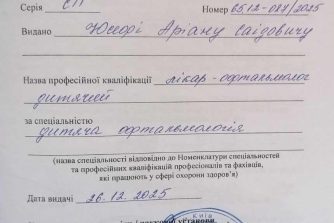 Серія СП Номер 6512-087/2025
Видано Юсефі Аріану Саідовичу
Назва професійної кваліфікації лікар-офтальмолог
дитячий
за спеціальністю
дитяча офтальмологія
(назва спеціальності відповідно до Номенклатури спеціальностей
та професійних кваліфікацій професіоналів та фахівців,
які працюють у сфері охорони здоров'я)
Дата видачі 26.12.2025
Київ